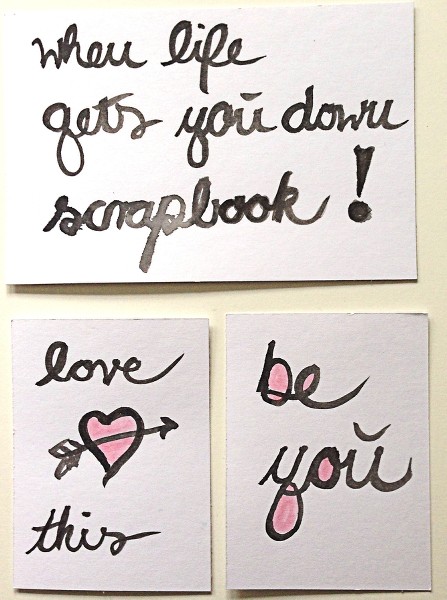 when life
gets you down
scrapbook!
love
this
be
you